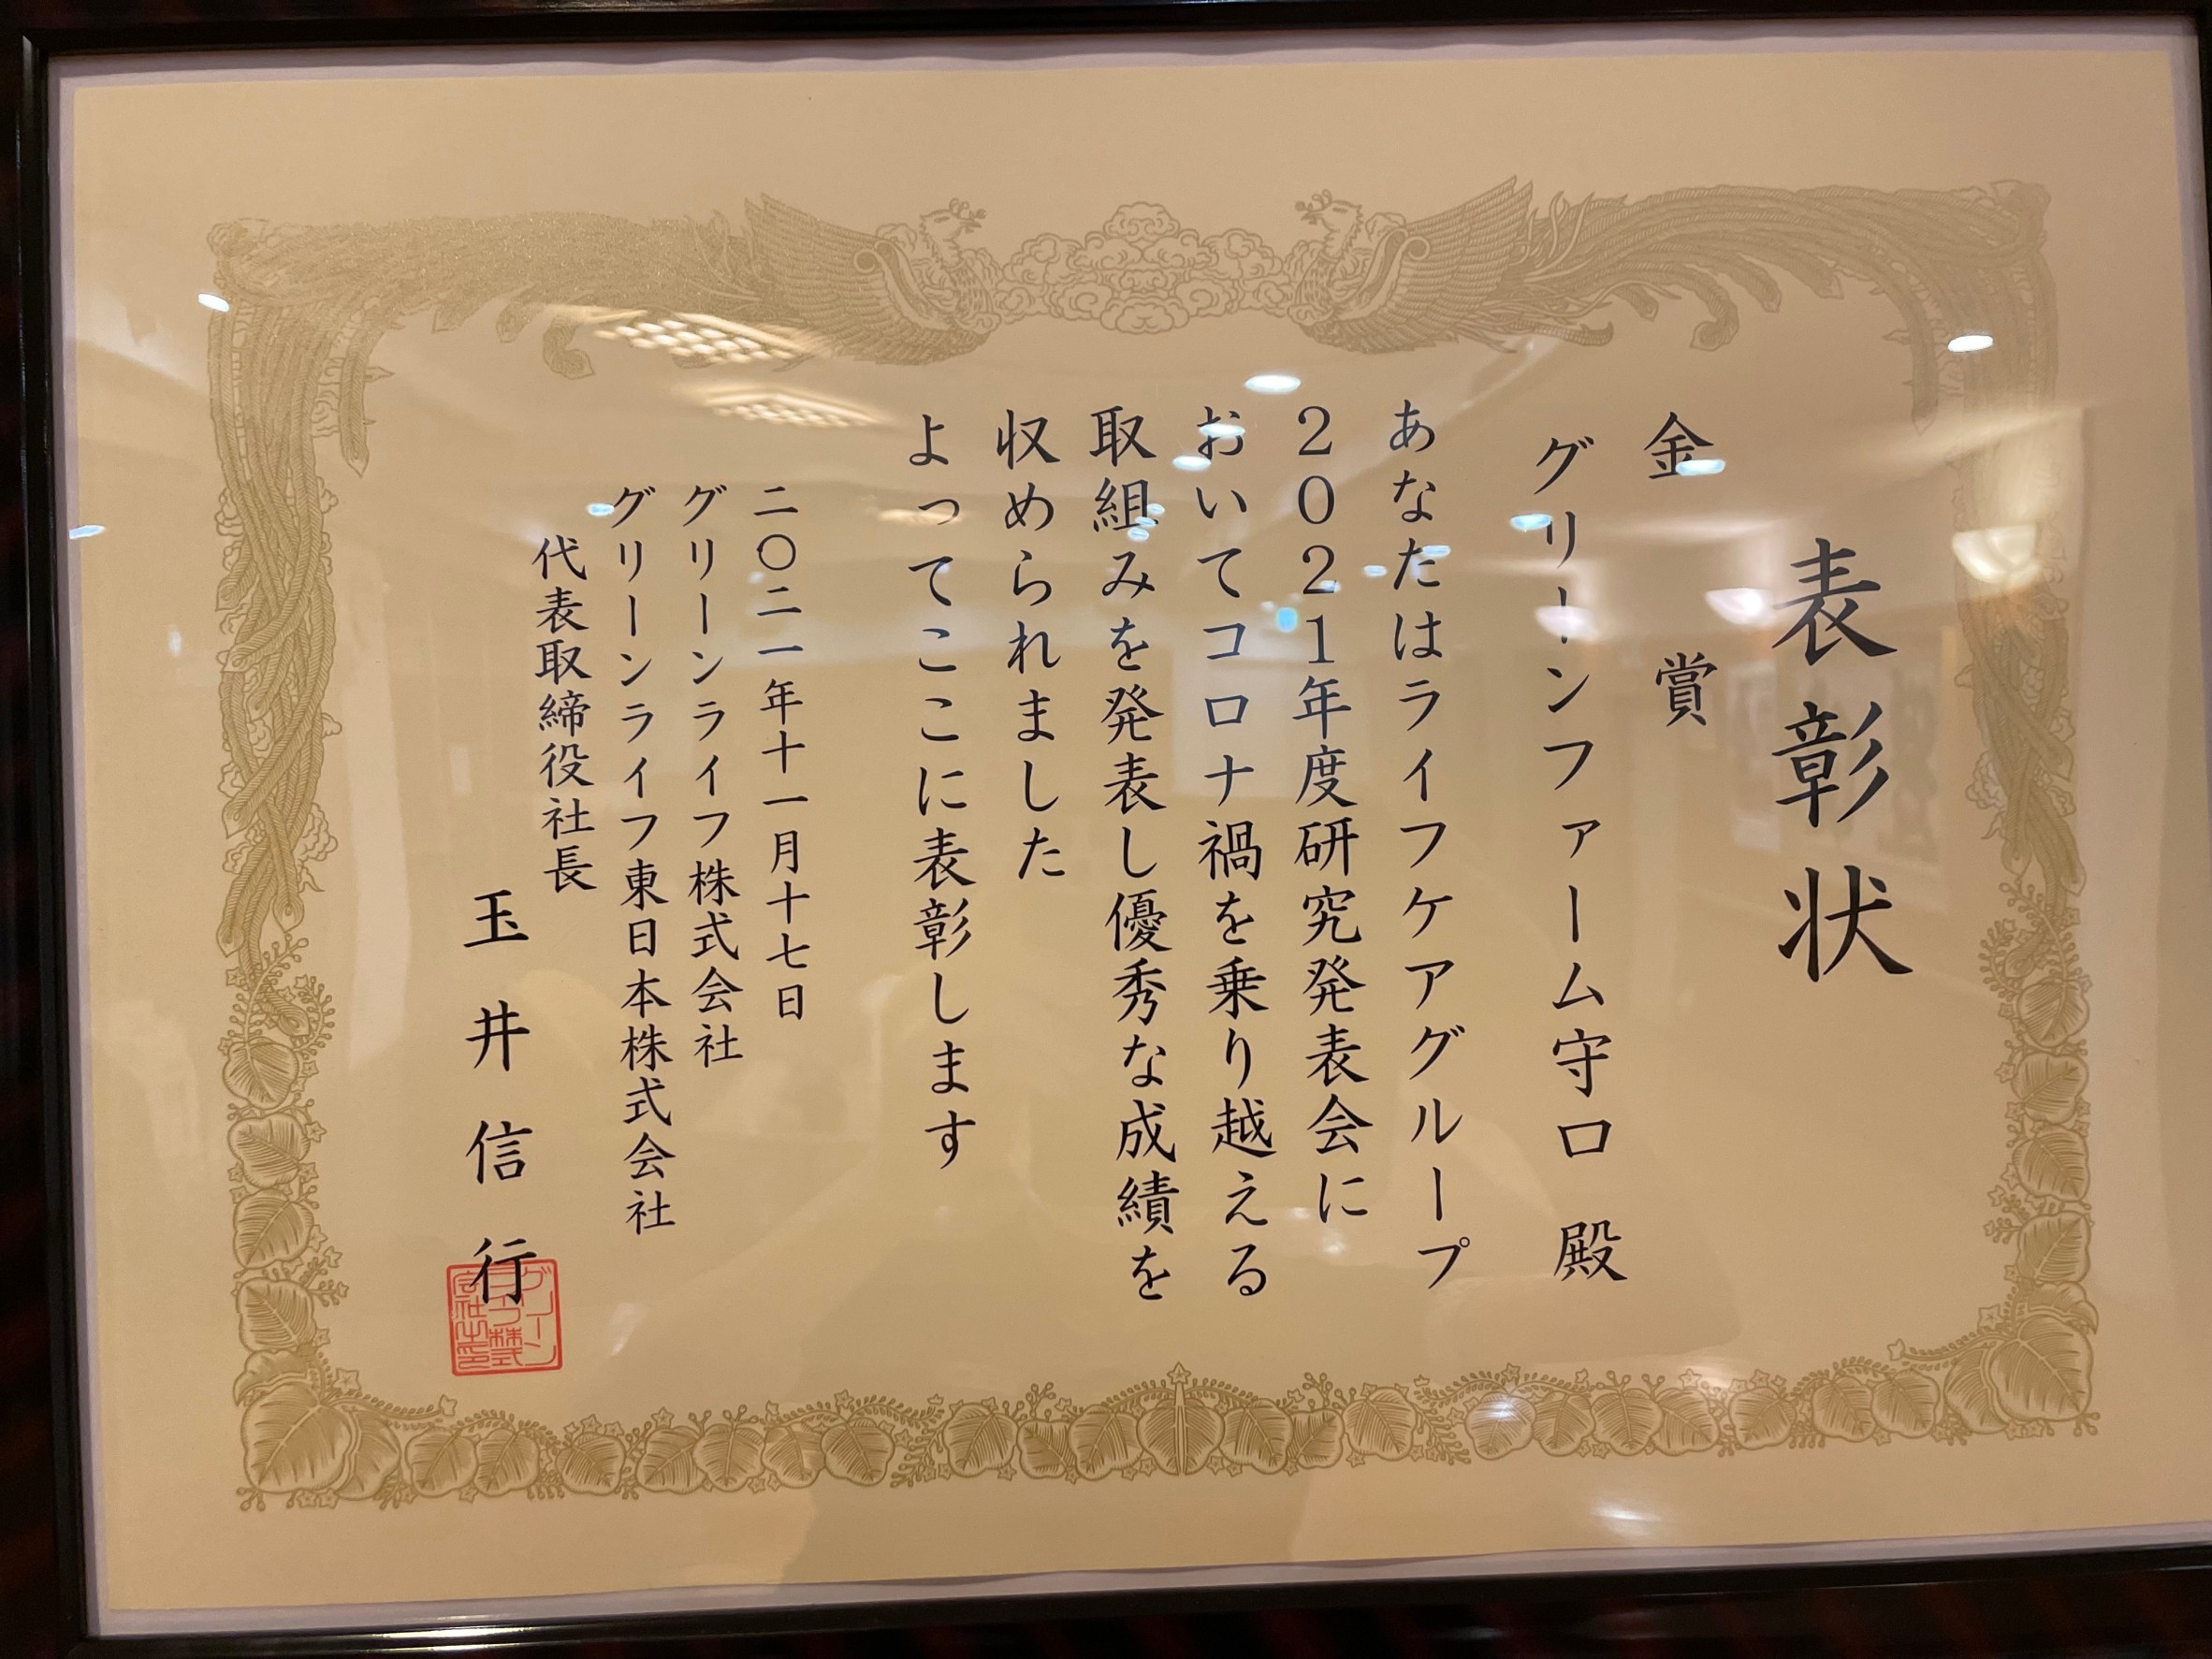 表彰状
金賞
グリーンファーム守口 殿
あなたはライフケアグループ
2021年度研究発表会に
おいてコロナ禍を乗り越える
取組みを発表し優秀な成績を
収められました
よってここに表彰します
二〇二一年十一月十七日
グリーンライフ株式会社
グリーンライフ東日本株式会社
代表取締役社長
玉井信行
グリーン
ライフ株式
会社之印